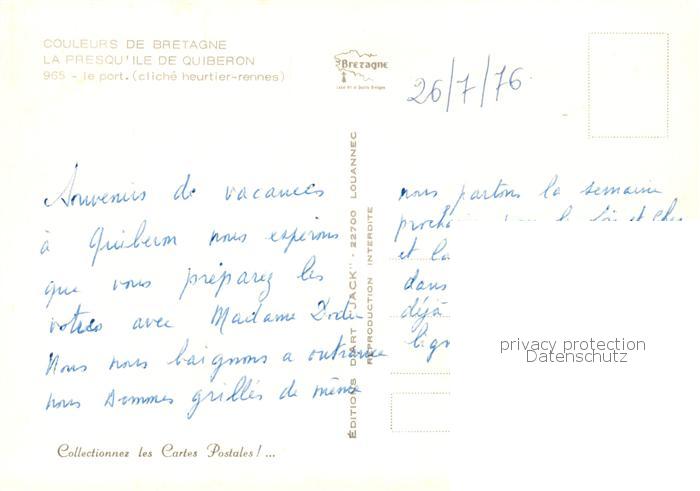 COULEURS DE BRETAGNE
LA PRESQU'ILE DE QUIBERON
965 - le port. (cliché heurtier-rennes)
Bretagne
26/7/76
Souvenirs de vacances
à Quiberon nous espérons
que vous préparez les
votres avec Madame
Nous nous baignons a outrance
nous sommes grillés de même
Collectionnez les Cartes Postales ! ...
ÉDITIONS D'ART "JACK" - 22700 LOUANNEC
REPRODUCTION INTERDITE
nous partons la semaine
et la
dans
déjà
privacy protection
Datenschutz